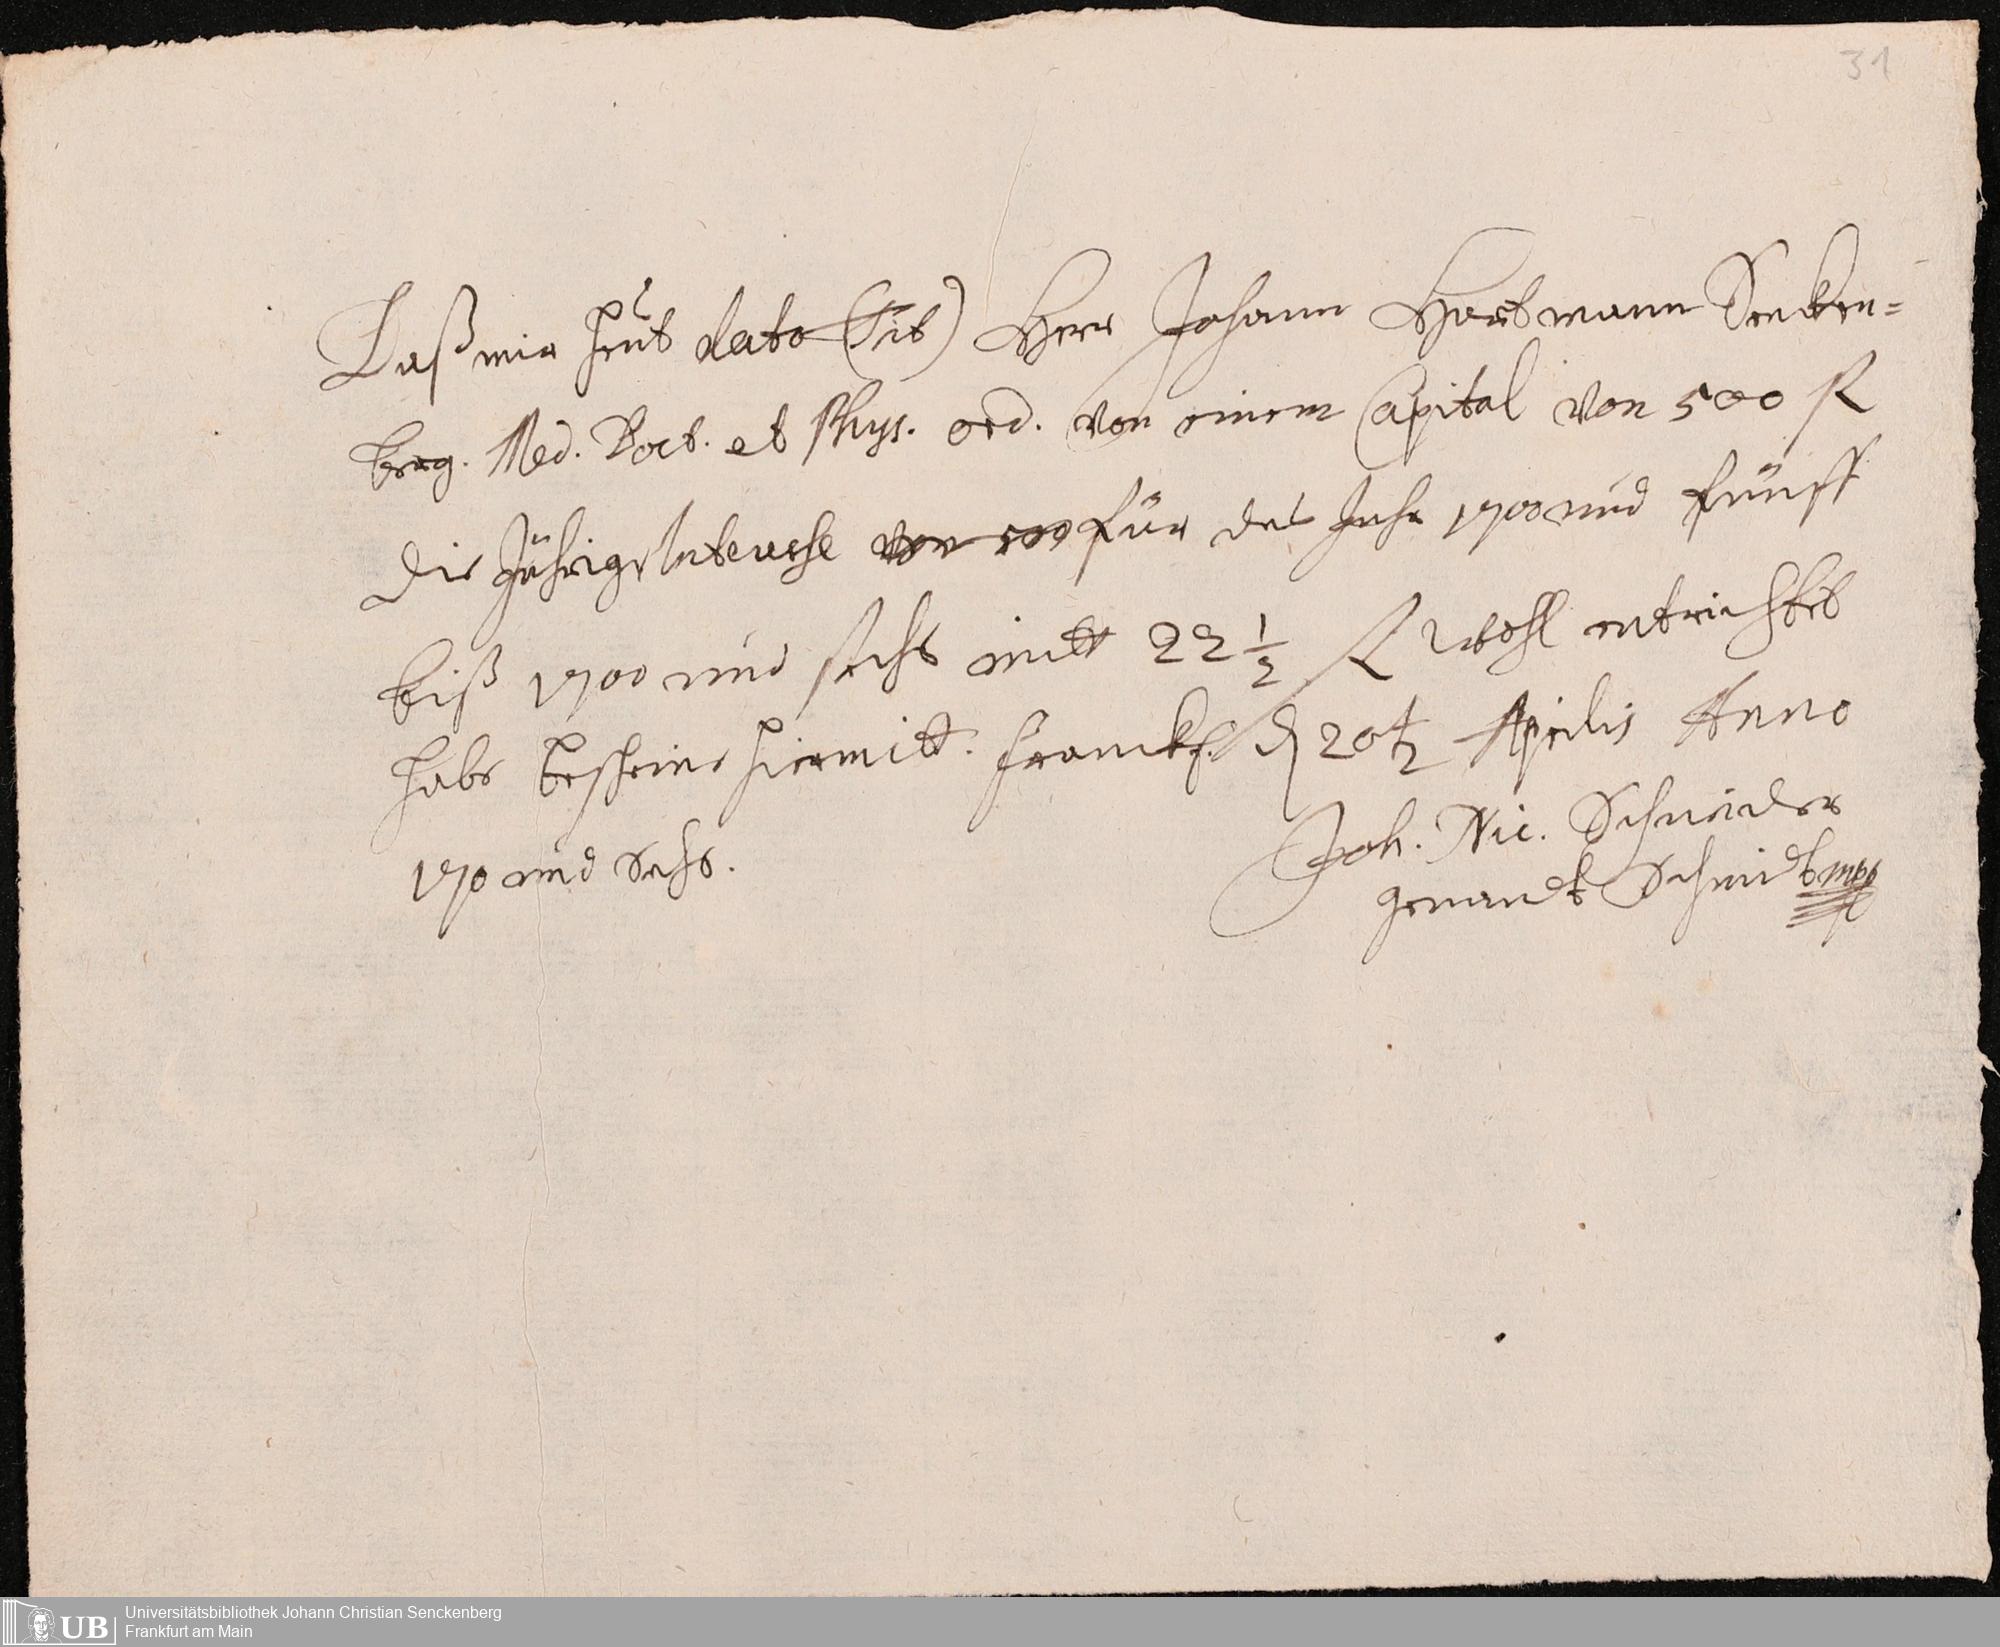 31
Daß mir heut dato (Tit) Herr Johann Hartmann Sencken=
berg. Med. Doct. et Phys. ord. von einem Capital von 500 fl
die Jährige Interesse von 500 für das Jahr 1700 und fünff
biß 1700 und sechs mitt 22 1/2 fl wohl entrichtet
habe bescheine hiermitt. Franckf. d 20 Aprilis Anno
170 und Sechs.
Joh. Nic. Schneider
genandt Schmidt mpp
UB
Universitätsbibliothek Johann Christian Senckenberg
Frankfurt am Main